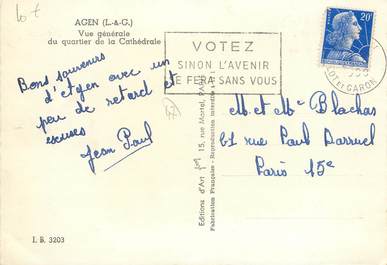 10 f
AGEN (L.-&-G.)
Vue générale
du quartier de la Cathédrale
Bons souvenirs
d'Agen avec un
peu de retard et
excuses
Jean Paul
I. S. 3203
VOTEZ
SINON L'AVENIR
SE FERA SANS VOUS
20F
LOT et GARONNE
Editions d'Art
15, rue Martel, PARIS
Fabrication Française - Reproduction interdite
M. et Me Blachas
61 rue Paul Barruel
Paris 15e